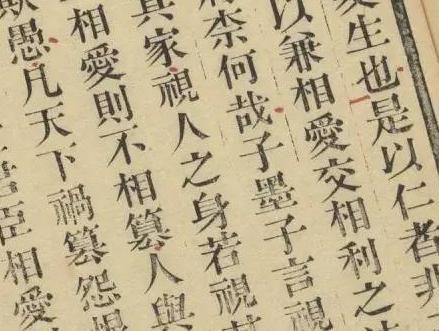 愛生也是以仁者非
以兼相愛交相利之
柰何哉子墨子言視
其家視人之身若視其
相愛則不相篡人與
欺愚凡天下禍篡怨恨
君臣相愛